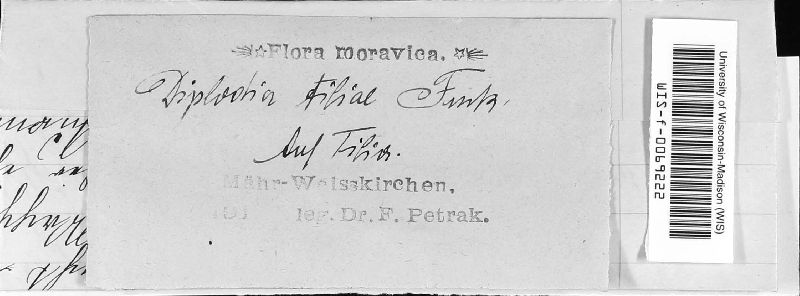 Flora moravica.
Diplodia tiliae Fuck.
Auf Tilia.
Mähr-Weisskirchen,
191 leg. Dr. F. Petrak.
University of Wisconsin-Madison (WIS)
WIS-f-0069222